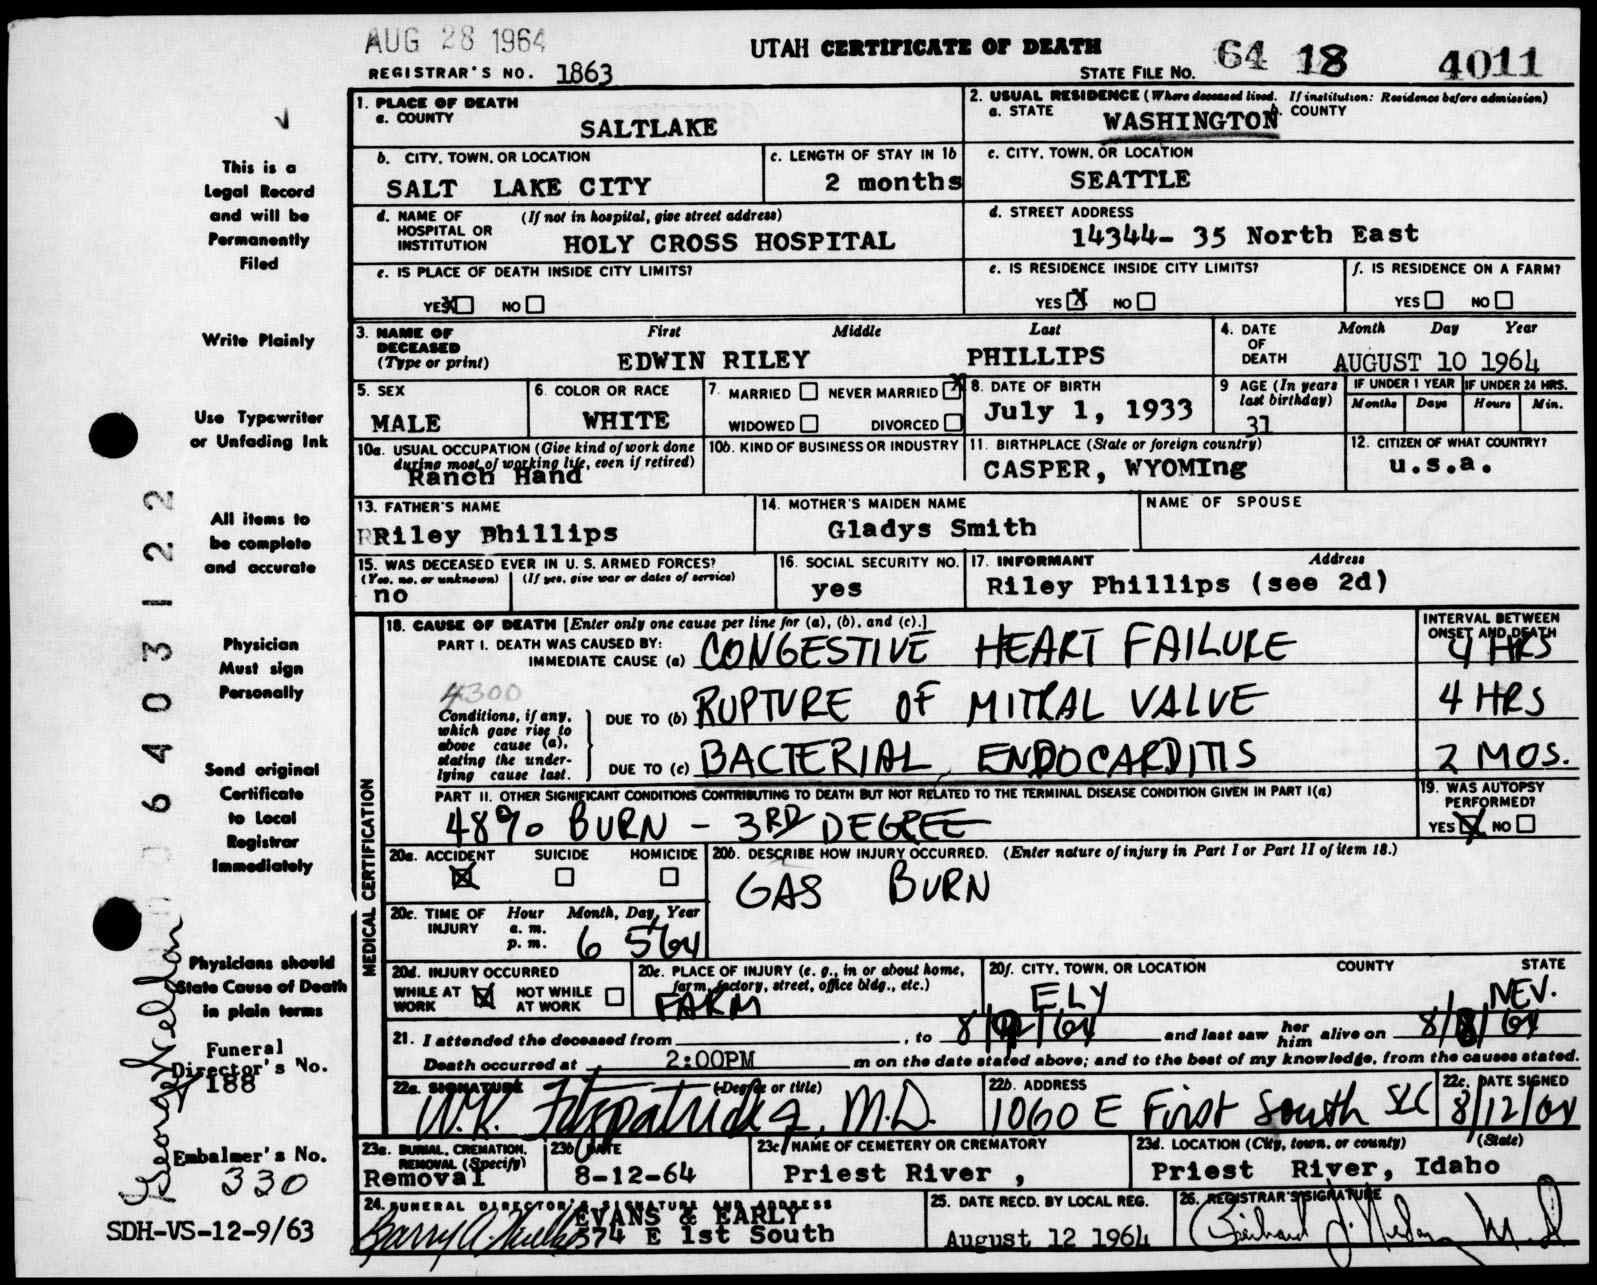 AUG 28 1964
UTAH CERTIFICATE OF DEATH
REGISTRAR'S NO. 1863
STATE FILE NO. 64 18 4011
This is a
Legal Record
and will be
Permanently
Filed
Write Plainly
Use Typewriter
or Unfading Ink
All items to
be complete
and accurate
Physician
Must sign
Personally
Send original
Certificate
to Local
Registrar
Immediately
Physicians should
State Cause of Death
in plain terms
Funeral
Director's No.
188
Embalmer's No.
330
SDH-VS-12-9/63
06403122
1. PLACE OF DEATH
a. COUNTY
SALTLAKE
2. USUAL RESIDENCE (Where deceased lived. If institution: Residence before admission)
a. STATE WASHINGTON b. COUNTY
b. CITY, TOWN, OR LOCATION
SALT LAKE CITY
c. LENGTH OF STAY IN 1b
2 months
c. CITY, TOWN, OR LOCATION
SEATTLE
d. NAME OF HOSPITAL OR INSTITUTION (If not in hospital, give street address)
HOLY CROSS HOSPITAL
d. STREET ADDRESS
14344- 35 North East
e. IS PLACE OF DEATH INSIDE CITY LIMITS?
YES X NO
e. IS RESIDENCE INSIDE CITY LIMITS?
YES X NO
f. IS RESIDENCE ON A FARM?
YES NO
3. NAME OF DECEASED (Type or print) First Middle Last
EDWIN RILEY PHILLIPS
4. DATE OF DEATH Month Day Year
AUGUST 10 1964
5. SEX
MALE
6. COLOR OR RACE
WHITE
7. MARRIED NEVER MARRIED X
WIDOWED DIVORCED
8. DATE OF BIRTH
July 1, 1933
9 AGE (In years last birthday)
31
IF UNDER 1 YEAR IF UNDER 24 HRS.
Months Days Hours Min.
10a. USUAL OCCUPATION (Give kind of work done during most of working life, even if retired)
Ranch Hand
10b. KIND OF BUSINESS OR INDUSTRY
11. BIRTHPLACE (State or foreign country)
CASPER, WYOMIng
12. CITIZEN OF WHAT COUNTRY?
u.s.a.
13. FATHER'S NAME
Riley Phillips
14. MOTHER'S MAIDEN NAME
Gladys Smith
NAME OF SPOUSE
15. WAS DECEASED EVER IN U. S. ARMED FORCES?
(Yes, no, or unknown) (If yes, give war or dates of service)
no
16. SOCIAL SECURITY NO.
yes
17. INFORMANT Address
Riley Phillips (see 2d)
MEDICAL CERTIFICATION
18. CAUSE OF DEATH [Enter only one cause per line for (a), (b), and (c).]
INTERVAL BETWEEN ONSET AND DEATH
PART I. DEATH WAS CAUSED BY:
IMMEDIATE CAUSE (a) CONGESTIVE HEART FAILURE 4 HRS
4300
Conditions, if any, which gave rise to above cause (a), stating the underlying cause last.
DUE TO (b) RUPTURE OF MITRAL VALVE 4 HRS
DUE TO (c) BACTERIAL ENDOCARDITIS 2 MOS.
PART II. OTHER SIGNIFICANT CONDITIONS CONTRIBUTING TO DEATH BUT NOT RELATED TO THE TERMINAL DISEASE CONDITION GIVEN IN PART I(a)
48% BURN - 3RD DEGREE
19. WAS AUTOPSY PERFORMED?
YES X NO
20a. ACCIDENT X SUICIDE HOMICIDE
20b. DESCRIBE HOW INJURY OCCURRED. (Enter nature of injury in Part I or Part II of item 18.)
GAS BURN
20c. TIME OF INJURY Hour Month, Day, Year
a. m.
p. m. 6 5 64
20d. INJURY OCCURRED
WHILE AT WORK X NOT WHILE AT WORK
20e. PLACE OF INJURY (e. g., in or about home, farm, factory, street, office bldg., etc.)
FARM
20f. CITY, TOWN, OR LOCATION COUNTY STATE
ELY NEV.
21. I attended the deceased from , to 8/ /64 and last saw her him alive on 8/8/64
Death occurred at 2:00PM m on the date stated above; and to the best of my knowledge, from the causes stated.
22a. SIGNATURE (Degree or title)
W.K. Fitzpatrick M.D.
22b. ADDRESS
1060 E First South SLC
22c. DATE SIGNED
8/12/64
23a. BURIAL, CREMATION, REMOVAL (Specify)
Removal
23b DATE
8-12-64
23c NAME OF CEMETERY OR CREMATORY
Priest River ,
23d. LOCATION (City, town, or county) (State)
Priest River, Idaho
24. FUNERAL DIRECTOR'S SIGNATURE AND ADDRESS
EVANS & EARLY
574 E 1st South
25. DATE RECD. BY LOCAL REG.
August 12 1964
26. REGISTRAR'S SIGNATURE